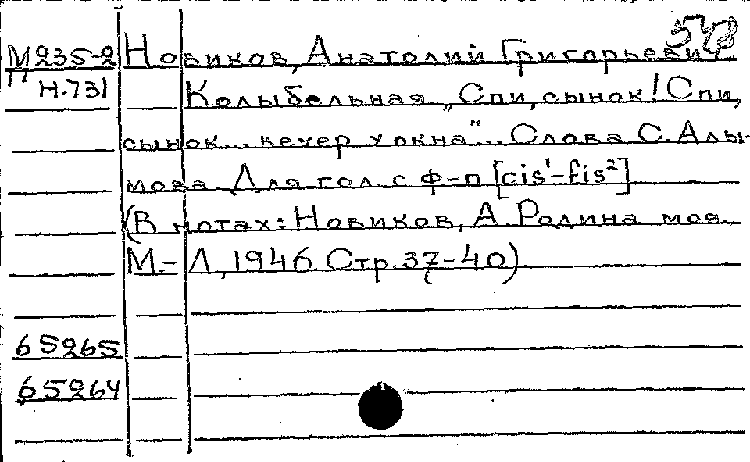 543
М235-2 Новиков, Анатолий Григорьеви
Н.731 Колыбельная „Спи, сынок! Спи,
сынок... вечер у окна"... Слова С. Алы-
мова Для гол. с ф-п [cis¹-fis²]
(В нотах: Новиков, А. Родина моя
М.-Л, 1946 Стр. 37-40)
65265
65264